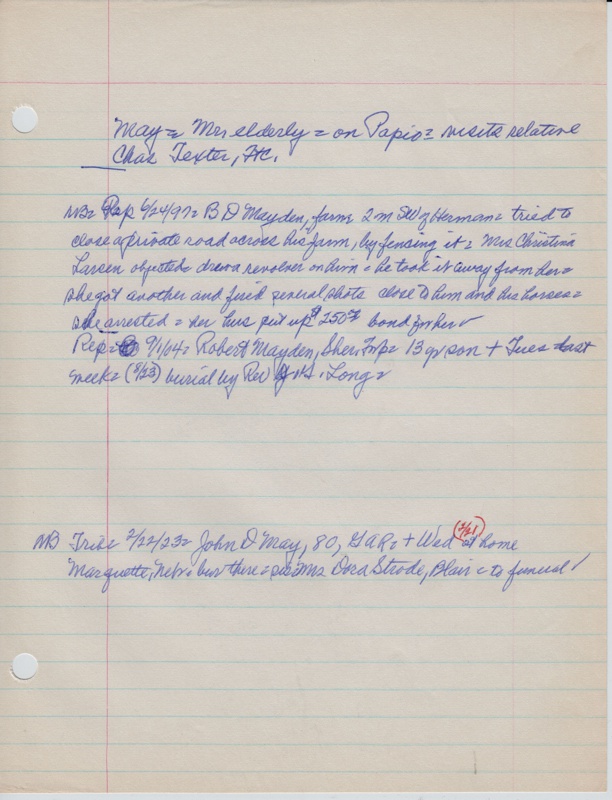 May = Mrs elderly = on Papio = visits relative
Chas Texter, FtC.
NB = Rep 6/24/97 = B D Mayden, farms 2 m SW of Herman = tried to
close a private road across his farm, by fencing it = Mrs Christina
Larsen objected = drew a revolver on him = he took it away from her =
she got another and fired several shots close to him and his horses =
she arrested = her hus put up $250 bond for her ✓
Rep = 9/1/04 = Robert Mayden, Sher. Twp = 13 yr son + Tues last
week = (8/23) burial by Rev Long =
NB Trib = 2/22/23 = John D May, 80, GAR = + Wed (2/21) at home
Marquette, Nebr = bur there = sis Mrs Dora Strode, Blair = to funeral ✓